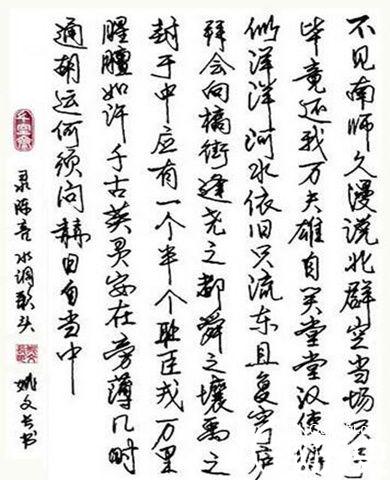 不见南师久漫说北群空当场
毕竟还我万夫雄自笑堂堂汉使得
似洋洋河水依旧只流东且复穹庐
拜会向槁街逢尧之都舜之壤禹之
封于中应有一个半个耻臣戎万里
腥膻如许千古英灵安在旁薄几时
通胡运何须问赫日自当中
录陈亮水调歌头
姚文长书